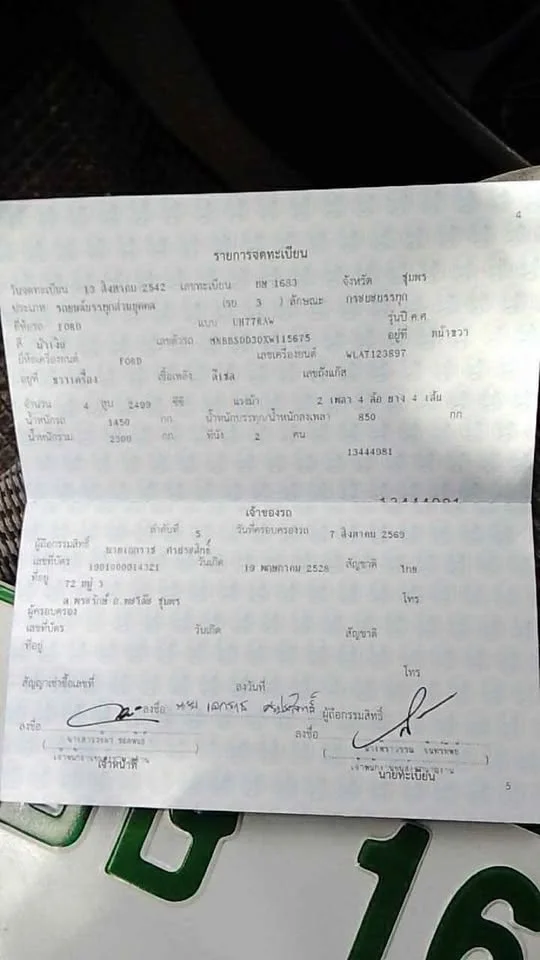 4
รายการจดทะเบียน
วันจดทะเบียน 13 สิงหาคม 2542 เลขทะเบียน บษ 1683 จังหวัด ชุมพร
ประเภท รถยนต์บรรทุกส่วนบุคคล (รย 3 ) ลักษณะ กระบะบรรทุก
ยี่ห้อรถ FORD แบบ UH77RAW รุ่นปี ค.ศ.
สี น้ำเงิน เลขตัวรถ MNBBSDD30XW115675 อยู่ที่ หน้าขวา
ยี่ห้อเครื่องยนต์ FORD เลขเครื่องยนต์ WLAT123897
อยู่ที่ ขวาเครื่อง เชื้อเพลิง ดีเซล เลขถังแก๊ส
จำนวน 4 สูบ 2499 ซีซี แรงม้า 2 เพลา 4 ล้อ ยาง 4 เส้น
น้ำหนักรถ 1450 กก. น้ำหนักบรรทุก/น้ำหนักลงเพลา 850 กก
น้ำหนักรวม 2300 กก. ที่นั่ง 2 คน
13444981
13444981
เจ้าของรถ
ลำดับที่ 5 วันที่ครอบครองรถ 7 สิงหาคม 2569
ผู้ถือกรรมสิทธิ์ นายเอกราช
เลขที่บัตร วันเกิด 19 พฤษภาคม 2528 สัญชาติ ไทย
ที่อยู่ 72 หมู่ 3
ต.พระรักษ์ อ.พะโต๊ะ ชุมพร โทร
ผู้ครอบครอง
เลขที่บัตร วันเกิด สัญชาติ
ที่อยู่
โทร
สัญญาเช่าซื้อเลขที่ ลงวันที่
ลงชื่อ นาย เอกราช ผู้ถือกรรมสิทธิ์
ลงชื่อ ลงชื่อ
เจ้าหน้าที่ นายทะเบียน
5
16